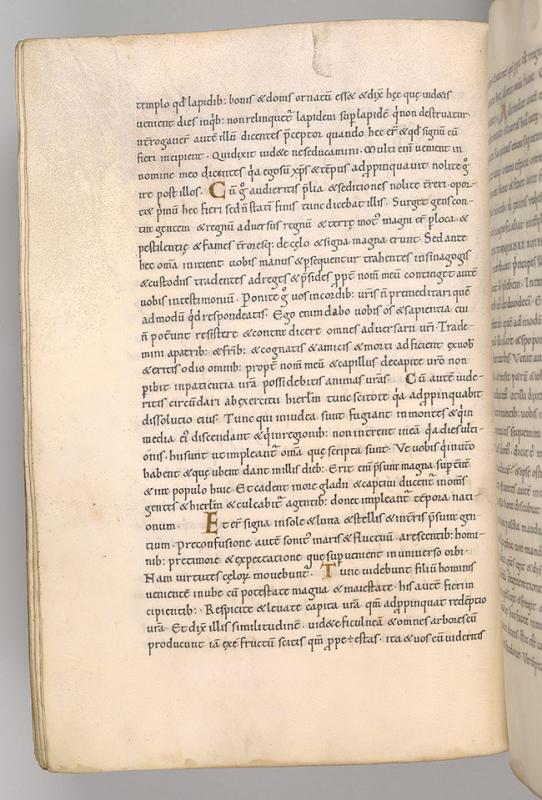 templo qđ lapidib: bonis & donis ornatū ess& & dix̄ hęc quę uid&is
uenient dies inqb: non relinquet͛ lapidem sup lapidē q̇ non destruatur.
nt͛rogauer̄ autē illū dicentes p̄ceptor quando hęc er̄ & qđ signū cū
fieri incipient. Qui dixit uid&e ne seducamini. Multi eni̅ uenient in
nomine meo dicentes q̇a ego sū xp̄s & tēpus adp̄pinquauit nolite g̊
ire post illos. Cū g̊ audieritis p̄lia & seditiones nolite t͛reri opor-
t& p̄mū hec fieri sed n̄ statī finis tunc dicebat illis. Surg& gens con-
tra gentem & regnū aduersus regnū & terrę mot͛ magni er̄ p̱ loca. &
pestilentię & fames t͛roresq: de cęlo & signa magna erunt. Sed ante
hec om̄a inicient uobis manus & p̱sequentur trahentes in sinagogis
& custodias tradentes ad reges & p̄sides ppt̄ nom̄ meū conting& autē
uobis in testimoniū. Ponite g̊ uos in cordib: uris n̄ premeditari quē
admodū q̇d respondeatis. Ego enim dabo uobis os & sapientiā cui
n̄ poterūt resistere & contradicere omnes aduersarii uri. Trade-
mini a patrib: & frīb: & cognatis & amicis & morti adficient ex uob̄
& eritis odio omnib: propt̄ nom̄ meū & capillus de capite uro non
p̱ibit in patientia urā possidebitis animas urās. Cū autē uide-
ritis circūdari ab exercitu hierlm̄ tunc scitote q̇a adp̄pinquabit
dissolutio eius. Tunc qui in iudea sunt fugiant in montes & q̇ in
media ei͛ discendant & q̇ in regionib: non intrent in eā q̇a dies ulti-
onis hi sunt ut impleant̄ om̄a quę scripta sunt. Ve uobis q̇ in ut͛o
habent & quę uberū dant in illis dieb: Erit eni̅ p̄sura magna sup t͛rā
& ira populo huic. Et cadent in ore gladii & captiui ducent̄ in om̄s
gentes & hierlm̄ & culcabit̄ a gentib: donec impleant̄ tēpora nati-
onum. Et er̄ signa in sole & luna & stellis & in t͛ris p̄sura gen-
tium. p̄ confusione autē sonit͛ maris & fluctuū. arescentib: homi-
nib: p̄ timore & expectatione quę sup uenient in uniuerso orbi.
Nam uirtutes cęlor̄ mouebunt̄. Tunc uidebunt filiū hominis
uenientē in nube cū potestate magna & maiestate. his autē fieri in
cipientib: Respicite & leuate capita urā qm̄ adp̄pinquat redēptio
urā. Et dix̄ illis similitudinē. uid&e ficulneā & omnes arbores cū
producunt iā ex se fructū scitis qm̄ p̱pe ē ęstas. ita & uos cū uideritis